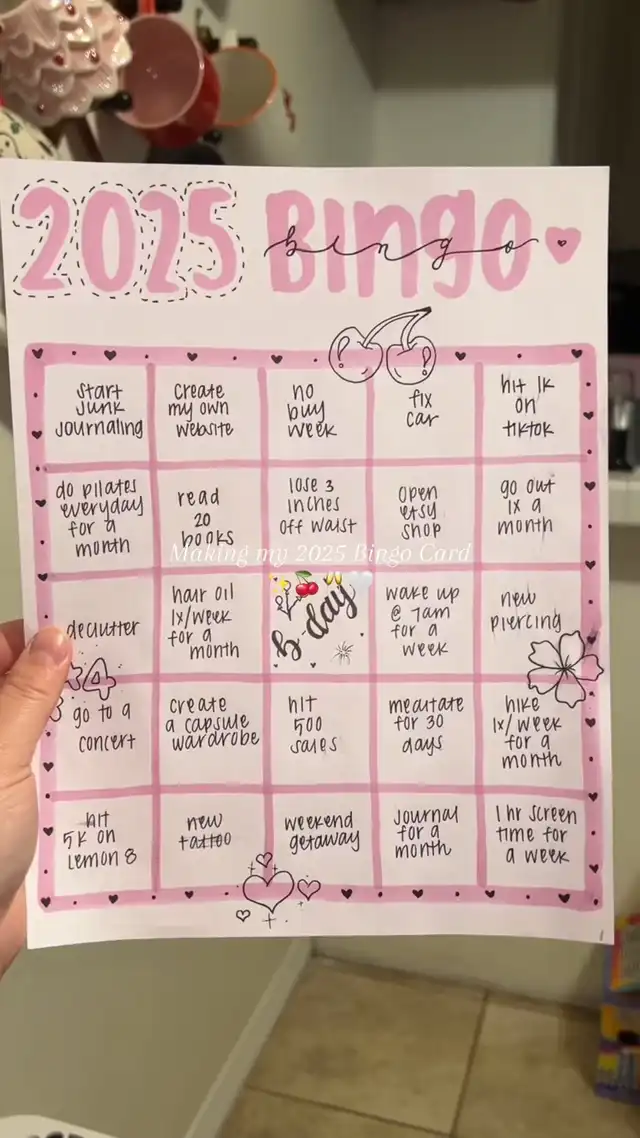 2025 Bingo
bingo
start
junk
journaling
create
my own
website
no
buy
week
fix
car
hit 1k
on
tiktok
do pilates
everyday
for a
month
read
20
books
lose 3
inches
off waist
open
etsy
shop
go out
1x a
month
Making my 2025 Bingo Card
declutter
hair oil
1x/week
for a
month
b-day
wake up
@ 7am
for a
week
new
piercing
go to a
concert
create
a capsule
wardrobe
hit
500
sales
meditate
for 30
days
hike
1x/week
for a
month
hit
5k on
Lemon 8
new
tattoo
weekend
getaway
journal
for a
month
1 hr screen
time for
a week